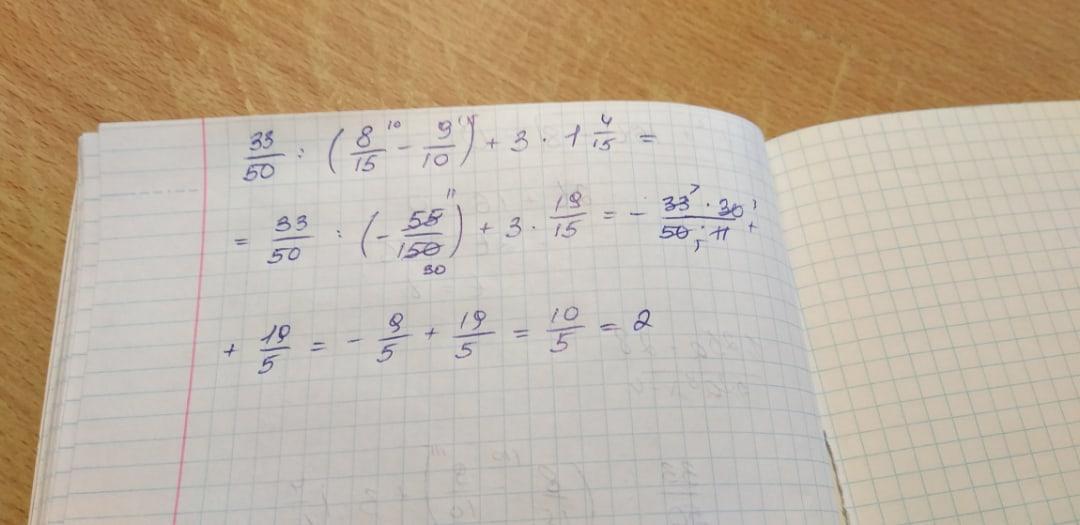 33/50 : (8/15 ¹⁰ - 9/10 ¹⁵) + 3 · 1 4/15 =
= 33/50 : (- 55/150 ¹¹ 30) + 3 · 19/15 = - 33 ³ · 30 ³ / 50 5 · 11 +
+ 19/5 = - 9/5 + 19/5 = 10/5 = 2